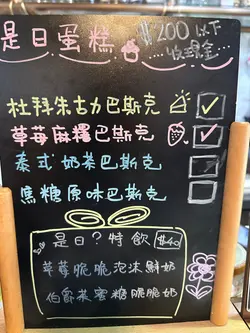 是日蛋糕
$200以下
收現金
杜拜朱古力巴斯克
草莓麻糬巴斯克
泰式奶茶巴斯克
焦糖原味巴斯克
是日？特飲 $40
草莓脆脆泡沫鮮奶
伯爵茶蜜糖脆脆奶